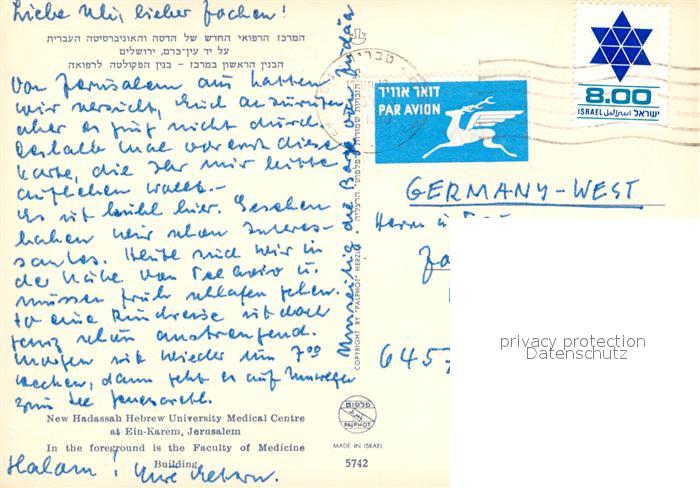 Liebe Uli, lieber Jochen!
המרכז הרפואי החדש של הדסה והאוניברסיטה העברית
על יד עין־כרם, ירושלים
הבנין הראשון במרכז - בנין הפקולטה לרפואה
Von Jerusalem aus hatten
wir versucht, Euch anzurufen
aber es ging nicht durch.
Deshalb mal vorerst diese
Karte, die Ihr mir bitte
aufheben wollt.-
Es ist kühl hier. Gesehen
haben wir schon Interes-
santes. Heute sind wir in
der Nähe von Tel Aviv u.
müssen früh schlafen gehen.
So eine Rundreise ist doch
ganz schön anstrengend.
Morgen ist wieder um 7⁰⁰
wecken, dann geht es auf Umwegen
zum See Genezareth.
New Hadassah Hebrew University Medical Centre
at Ein-Karem, Jerusalem
In the foreground is the Faculty of Medicine
Building
Shalom! Eure
Umseitig die Berge von Judäa
COPYRIGHT BY "PALPHOT" HERZLIA
פלפוט
PALPHOT
MADE IN ISRAEL
5742
דואר אוויר
PAR AVION
8.00
ISRAEL اسرائيل ישראל
GERMANY-WEST
Herrn u.
6457
privacy protection
Datenschutz